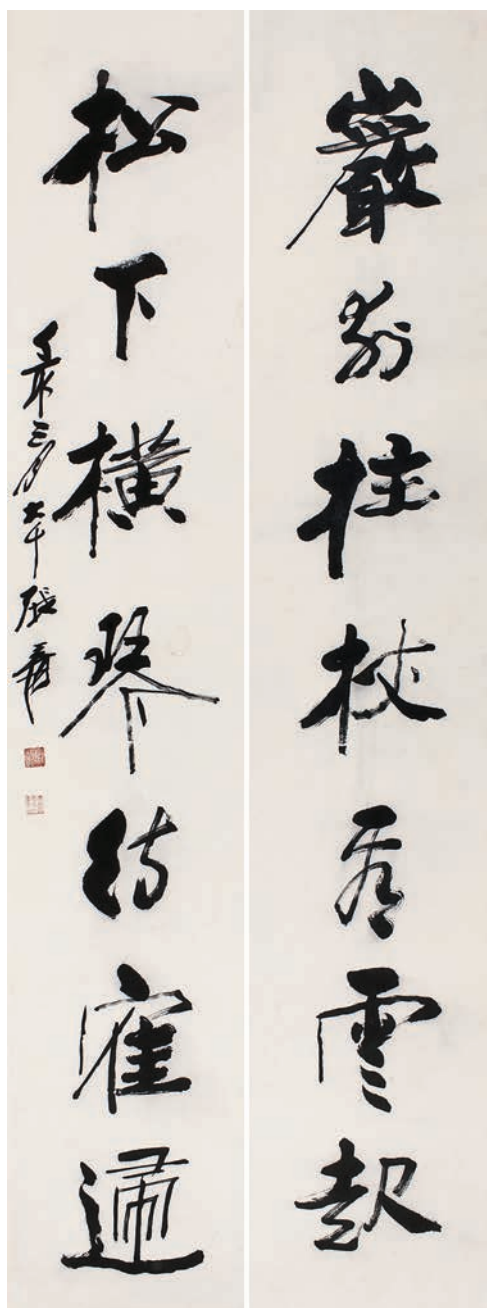 巖前拄杖看雲起
松下橫琴待寉歸
三月大千張爰